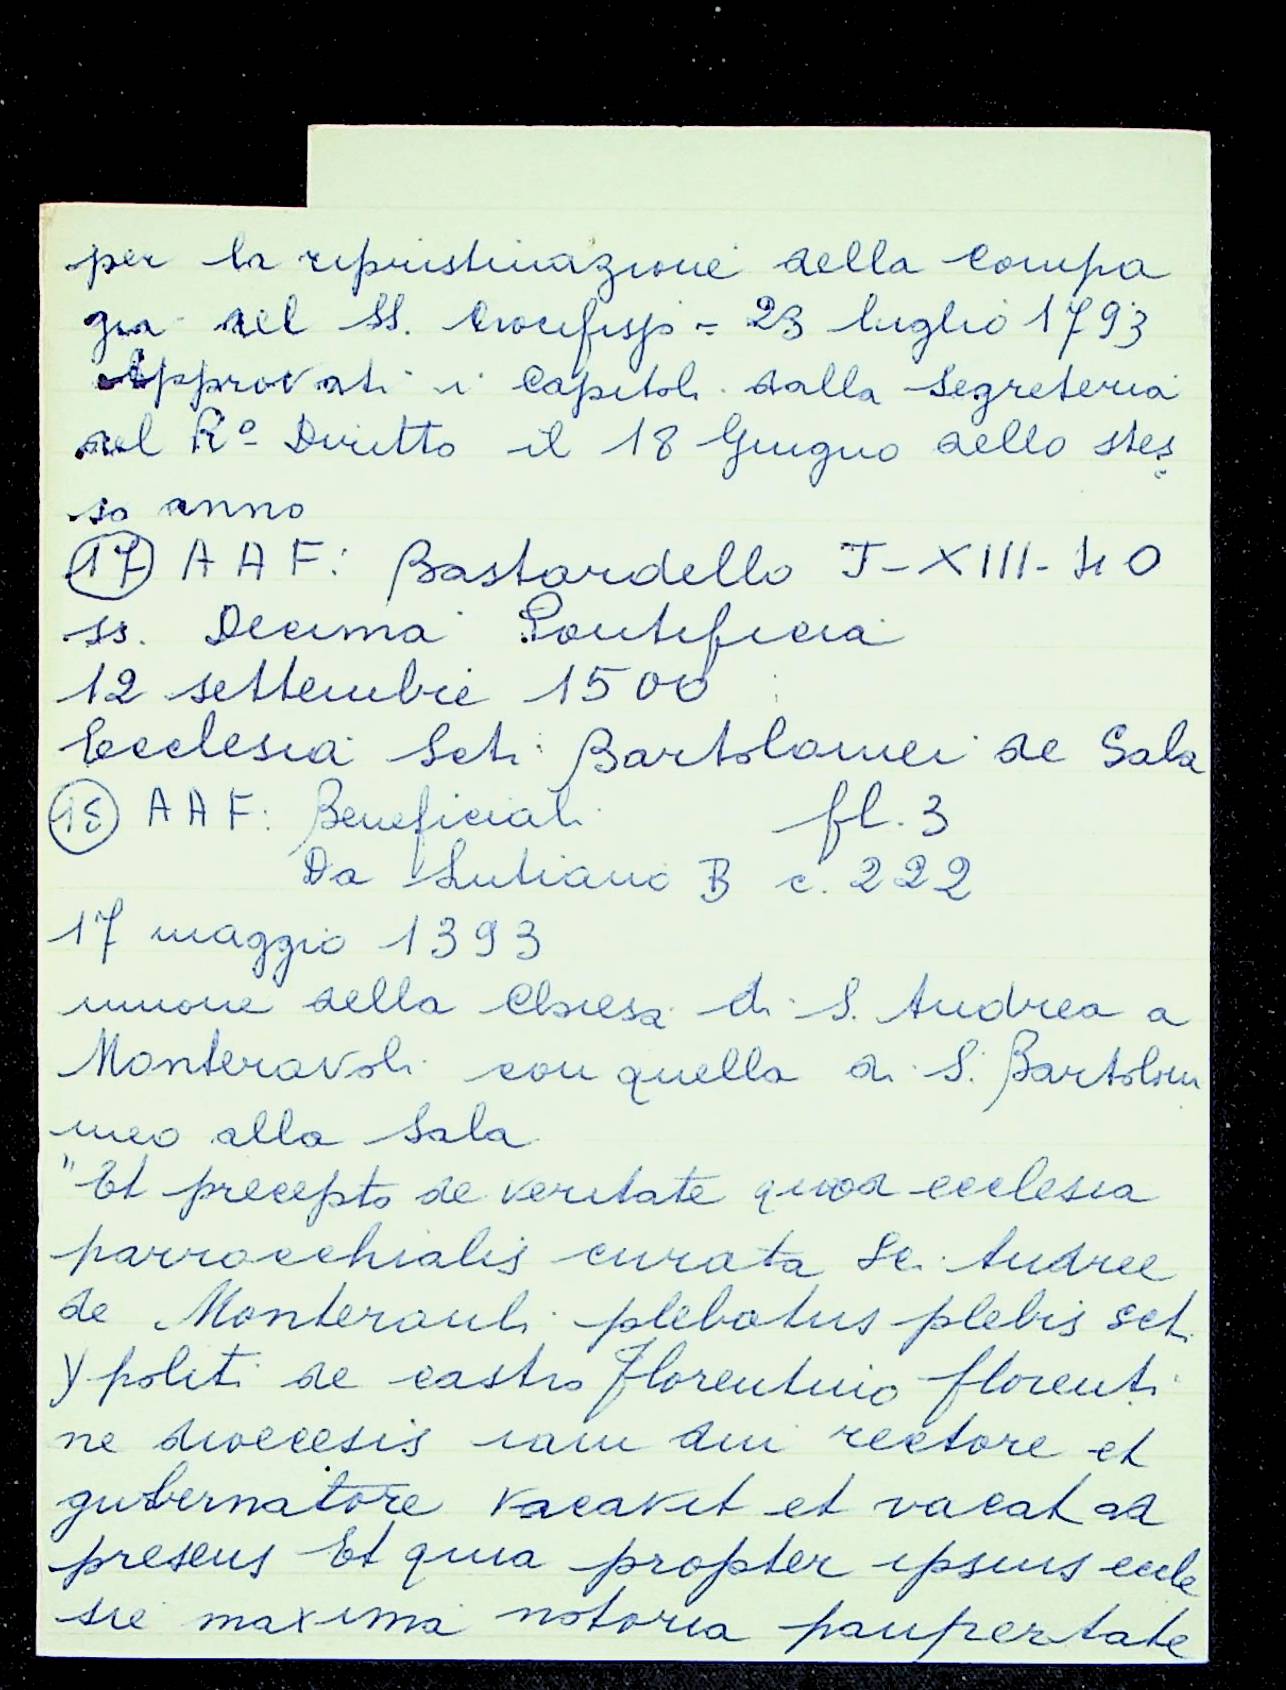 per la ripristinazione della Compa
gia del SS. Crocifisso = 23 luglio 1793
Approvati i Capitoli dalla Segreteria
del R.º Diritto il 18 Giugno dello stes
so anno
(17) A A F: Bastardello T-XIII-40
ss. Decima Pontificia
12 settembre 1500
Ecclesia Scti Bartolomei de Sala
(18) A A F: Beneficiali fl. 3
Da Lutiano B c. 222
17 maggio 1393
unione della Chiesa di S. Andrea a
Monteravoli con quella di S. Bartolom
meo alla Sala
"Et precepto de veritate quod ecclesia
parrocchialis curata Sc. Andree
de Monterauli plebatus plebis Sct.
Ypoliti de castro florentino florenti
ne diocesis iam diu rectore et
gubernatore vacavit et vacat ad
presens Et quia propter ipsius eccle
sie maxima notoria paupertate